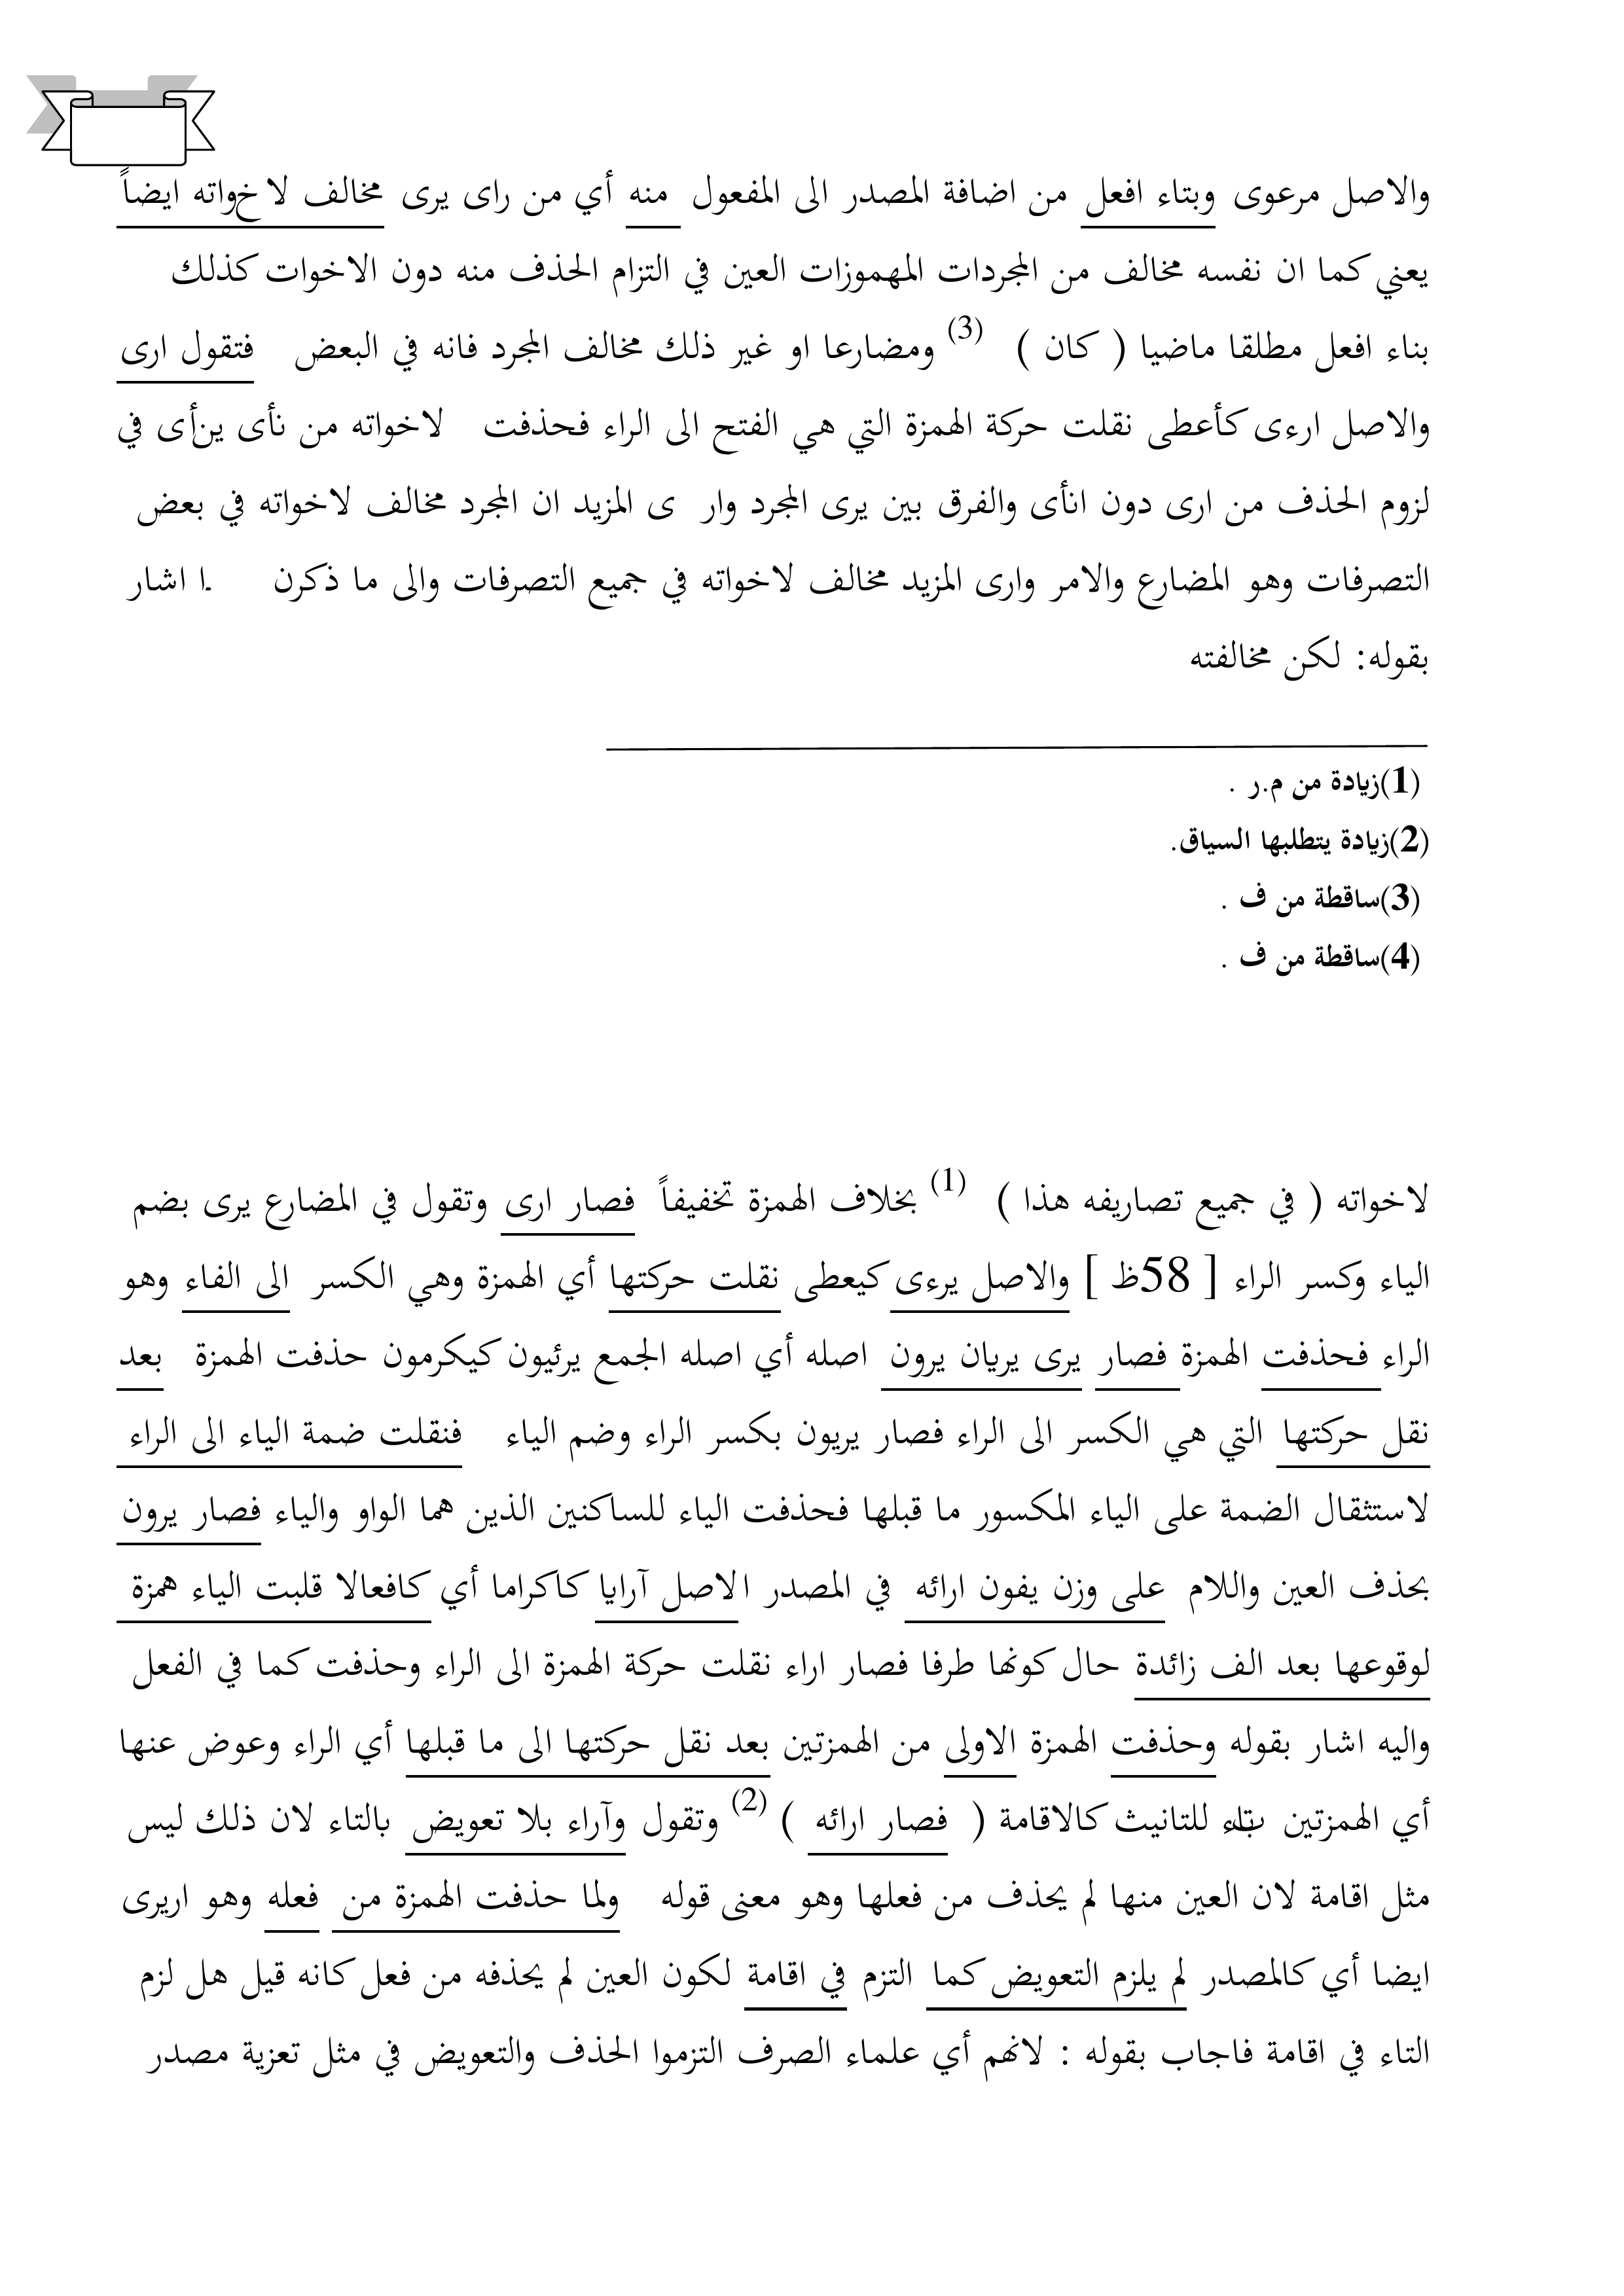 والاصل مرعوى وبتاء افعل من اضافة المصدر الى المفعول منه أي من راى يرى مخالف لاخواته ايضاً
يعني كما ان نفسه مخالف من المجردات المهموزات العين في التزام الحذف منه دون الاخوات كذلك
بناء افعل مطلقا ماضيا ( كان ) (3) ومضارعا او غير ذلك مخالف المجرد فانه في البعض فتقول ارى
والاصل ارءى كأعطى نقلت حركة الهمزة التي هي الفتح الى الراء فحذفت لاخواته من نأى ينأى في
لزوم الحذف من ارى دون انأى والفرق بين يرى المجرد وار ى المزيد ان المجرد مخالف لاخواته في بعض
التصرفات وهو المضارع والامر وارى المزيد مخالف لاخواته في جميع التصرفات والى ما ذكرن ـا اشار
بقوله: لكن مخالفته
(1)زيادة من م.ر .
(2)زيادة يتطلبها السياق.
(3)ساقطة من ف .
(4)ساقطة من ف .
لاخواته ( في جميع تصاريفه هذا ) (1) بخلاف الهمزة تخفيفاً فصار ارى وتقول في المضارع يرى بضم
الياء وكسر الراء [ 58ظ ] والاصل يرءى كيعطى نقلت حركتها أي الهمزة وهي الكسر الى الفاء وهو
الراء فحذفت الهمزة فصار يرى يريان يرون اصله أي اصله الجمع يرئيون كيكرمون حذفت الهمزة بعد
نقل حركتها التي هي الكسر الى الراء فصار يريون بكسر الراء وضم الياء فنقلت ضمة الياء الى الراء
لاستثقال الضمة على الياء المكسور ما قبلها فحذفت الياء للساكنين الذين هما الواو والياء فصار يرون
بحذف العين واللام على وزن يفون ارائه في المصدر الاصل آرايا كاكراما أي كافعالا قلبت الياء همزة
لوقوعها بعد الف زائدة حال كونها طرفا فصار اراء نقلت حركة الهمزة الى الراء وحذفت كما في الفعل
واليه اشار بقوله وحذفت الهمزة الاولى من الهمزتين بعد نقل حركتها الى ما قبلها أي الراء وعوض عنها
أي الهمزتين بتاء للتانيث كالاقامة ( فصار ارائه ) (2) وتقول وآراء بلا تعويض بالتاء لان ذلك ليس
مثل اقامة لان العين منها لم يحذف من فعلها وهو معنى قوله ولما حذفت الهمزة من فعله وهو اريرى
ايضا أي كالمصدر لم يلزم التعويض كما التزم في اقامة لكون العين لم يحذفه من فعل كانه قيل هل لزم
التاء في اقامة فاجاب بقوله : لانهم أي علماء الصرف التزموا الحذف والتعويض في مثل تعزية مصدر